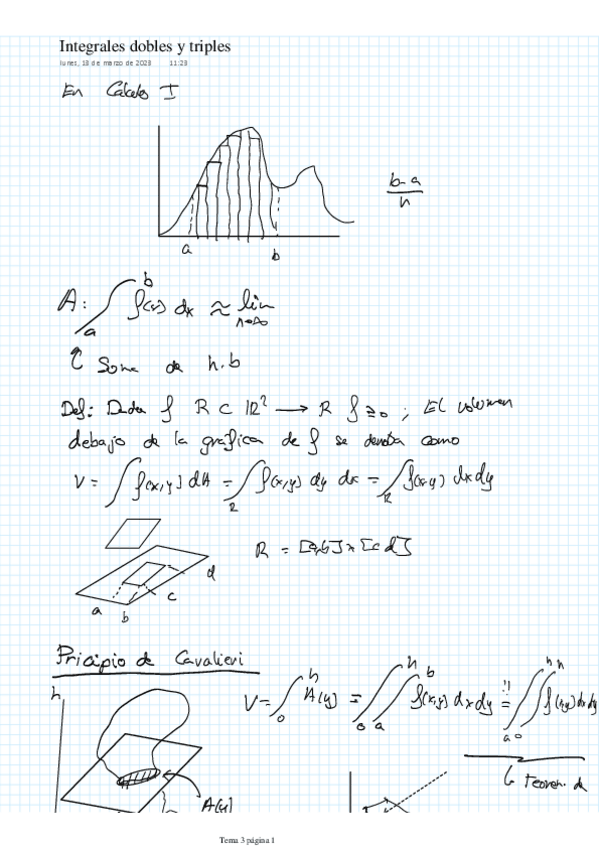 Integrales dobles y triples
lunes, 18 de marzo de 2023 11:28
En Cálculo I
b-a
n
a
b
A: ∫_a^b f(x) dx ≈ lim n→∞
↑ Suma de h.b
Def: Dada f R ⊂ IR² → R f ≥ 0 ; El volumen
debajo de la gráfica de f se denota como
V = ∫ f(x,y) dA = ∫_R f(x,y) dy dx = ∫_R f(x,y) dx dy
R = [a,b] x [c d]
d
c
a
b
Pricipio de Cavalieri
h
V = ∫_0^h A(y) = ∫_0^h ∫_a^b f(x,y) dx dy =
A(y)
Teorem. de
Tema 3 página 1